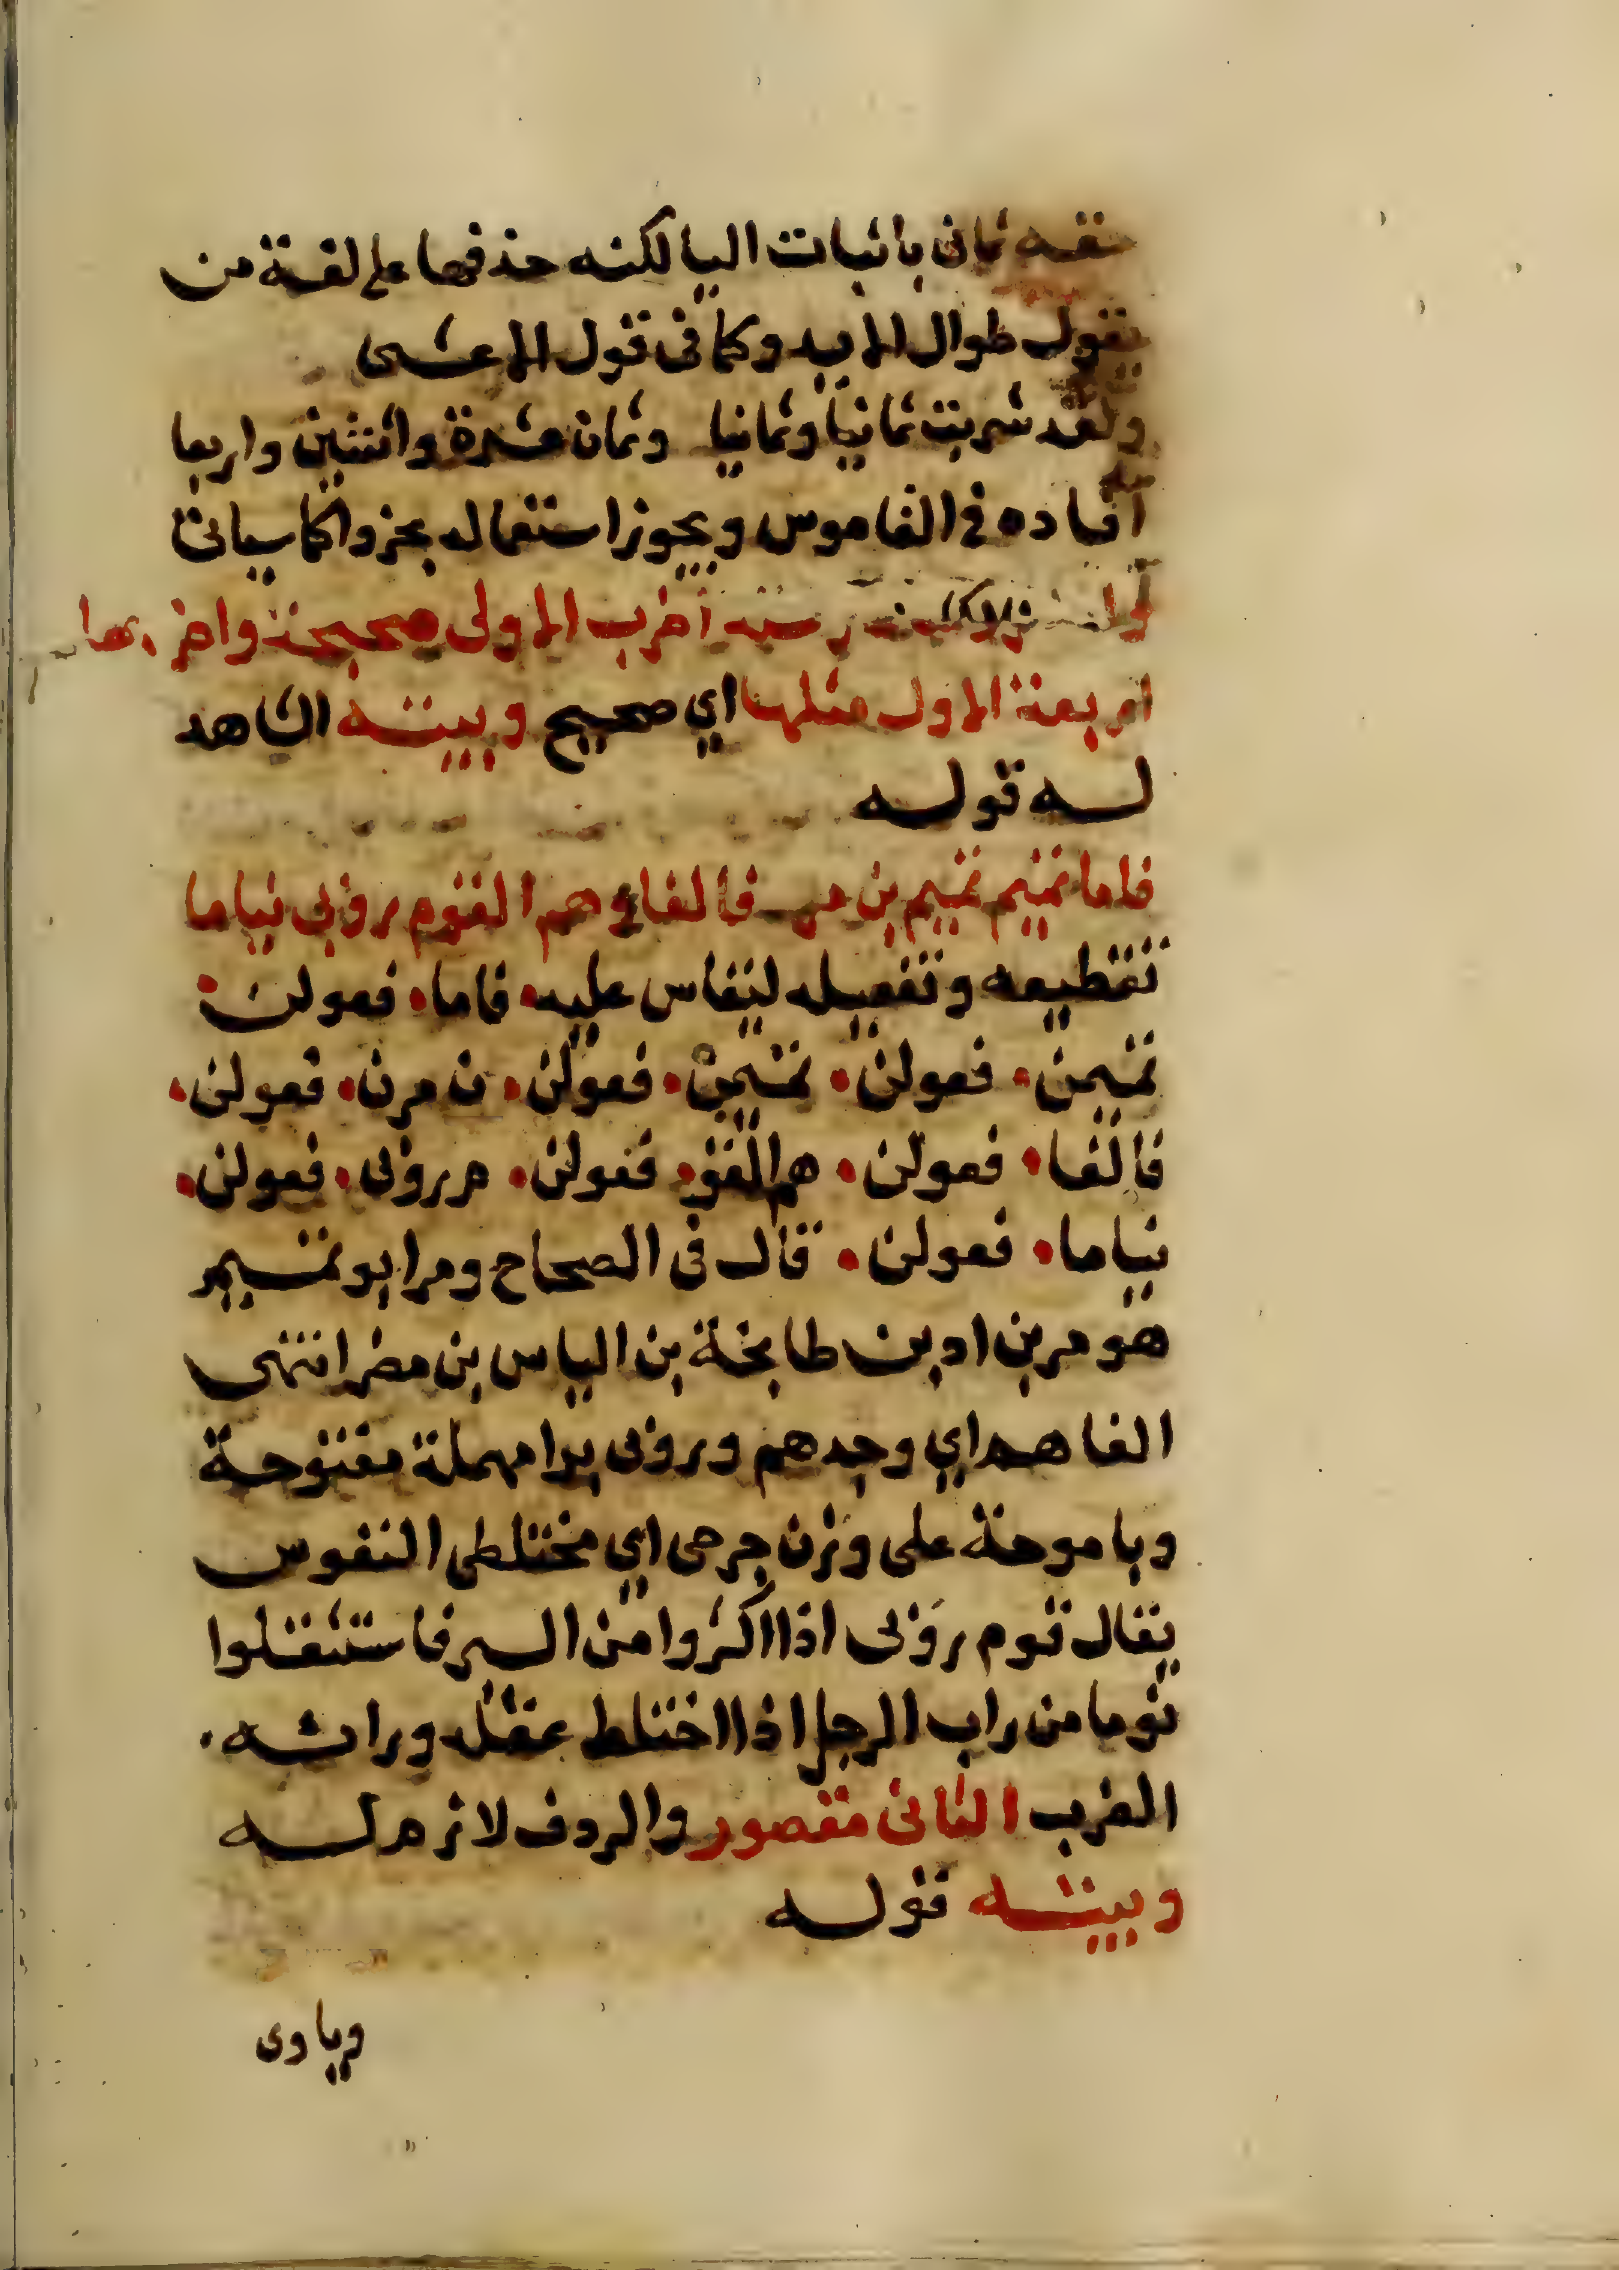 حقه ثمانى باثبات اليا لكنه حذفها على لغة من
يقول طوال الايد وكما فى قول الاعشى
ولقد شربت ثمانيا وثمانيا وثمان عشرة واثنتين واربعا
افاده فى القاموس ويجوز استعماله مجزوا كما سياتى
ستة اضرب الاولى صحيحة واضربها
اربعة الاول مثلها اي صحيح وبيته الشاهد
له قوله
فاما تميم تميم بن مر فالفاهم القوم روبى نياما
تقطيعه وتفعيله ليقاس عليه • فاما • فعولن •
تميمن • فعولن • تميمن • فعولن • ن مرن • فعولن •
فالفا • فعولن • هم القو • فعولن • م روبى • فعولن •
نياما • فعولن • قال فى الصحاح ومر ابو تميم
هو مر بن اد بن طابخة بن الياس بن مضر انتهى
الفاهم اي وجدهم وروبى برا مهملة مفتوحة
وبا موحدة على وزن جرحى اي مختلطى النفوس
يقال قوم روبى اذا اكثروا من السير فاستثقلوا
نوما من راب الرجل اذا اختلط عقله ورائه •
الضرب الثانى مقصور والردف لازم له
وبيته قوله
وياوى